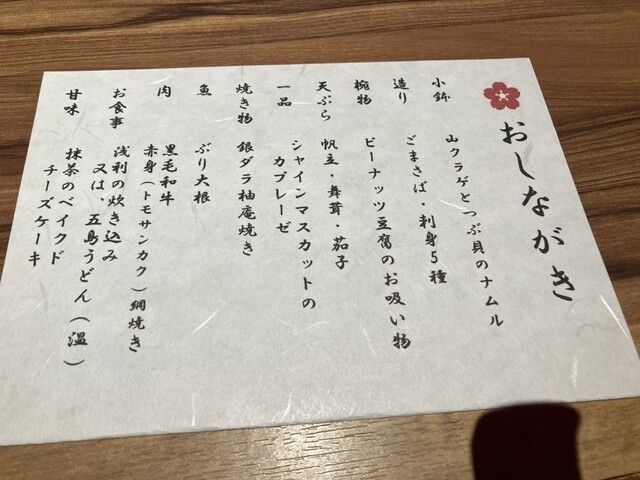 おしながき
小鉢 山クラゲとつぶ貝のナムル
造り ごまさば・刺身5種
椀物 ピーナッツ豆腐のお吸い物
天ぷら 帆立・舞茸・茄子
一品 シャインマスカットの
カプレーゼ
焼き物 銀ダラ柚庵焼き
魚 ぶり大根
肉 黒毛和牛
赤身(トモサンカク)網焼き
お食事 浅利の炊き込み
又は、五島うどん(温)
甘味 抹茶のベイクド
チーズケーキ